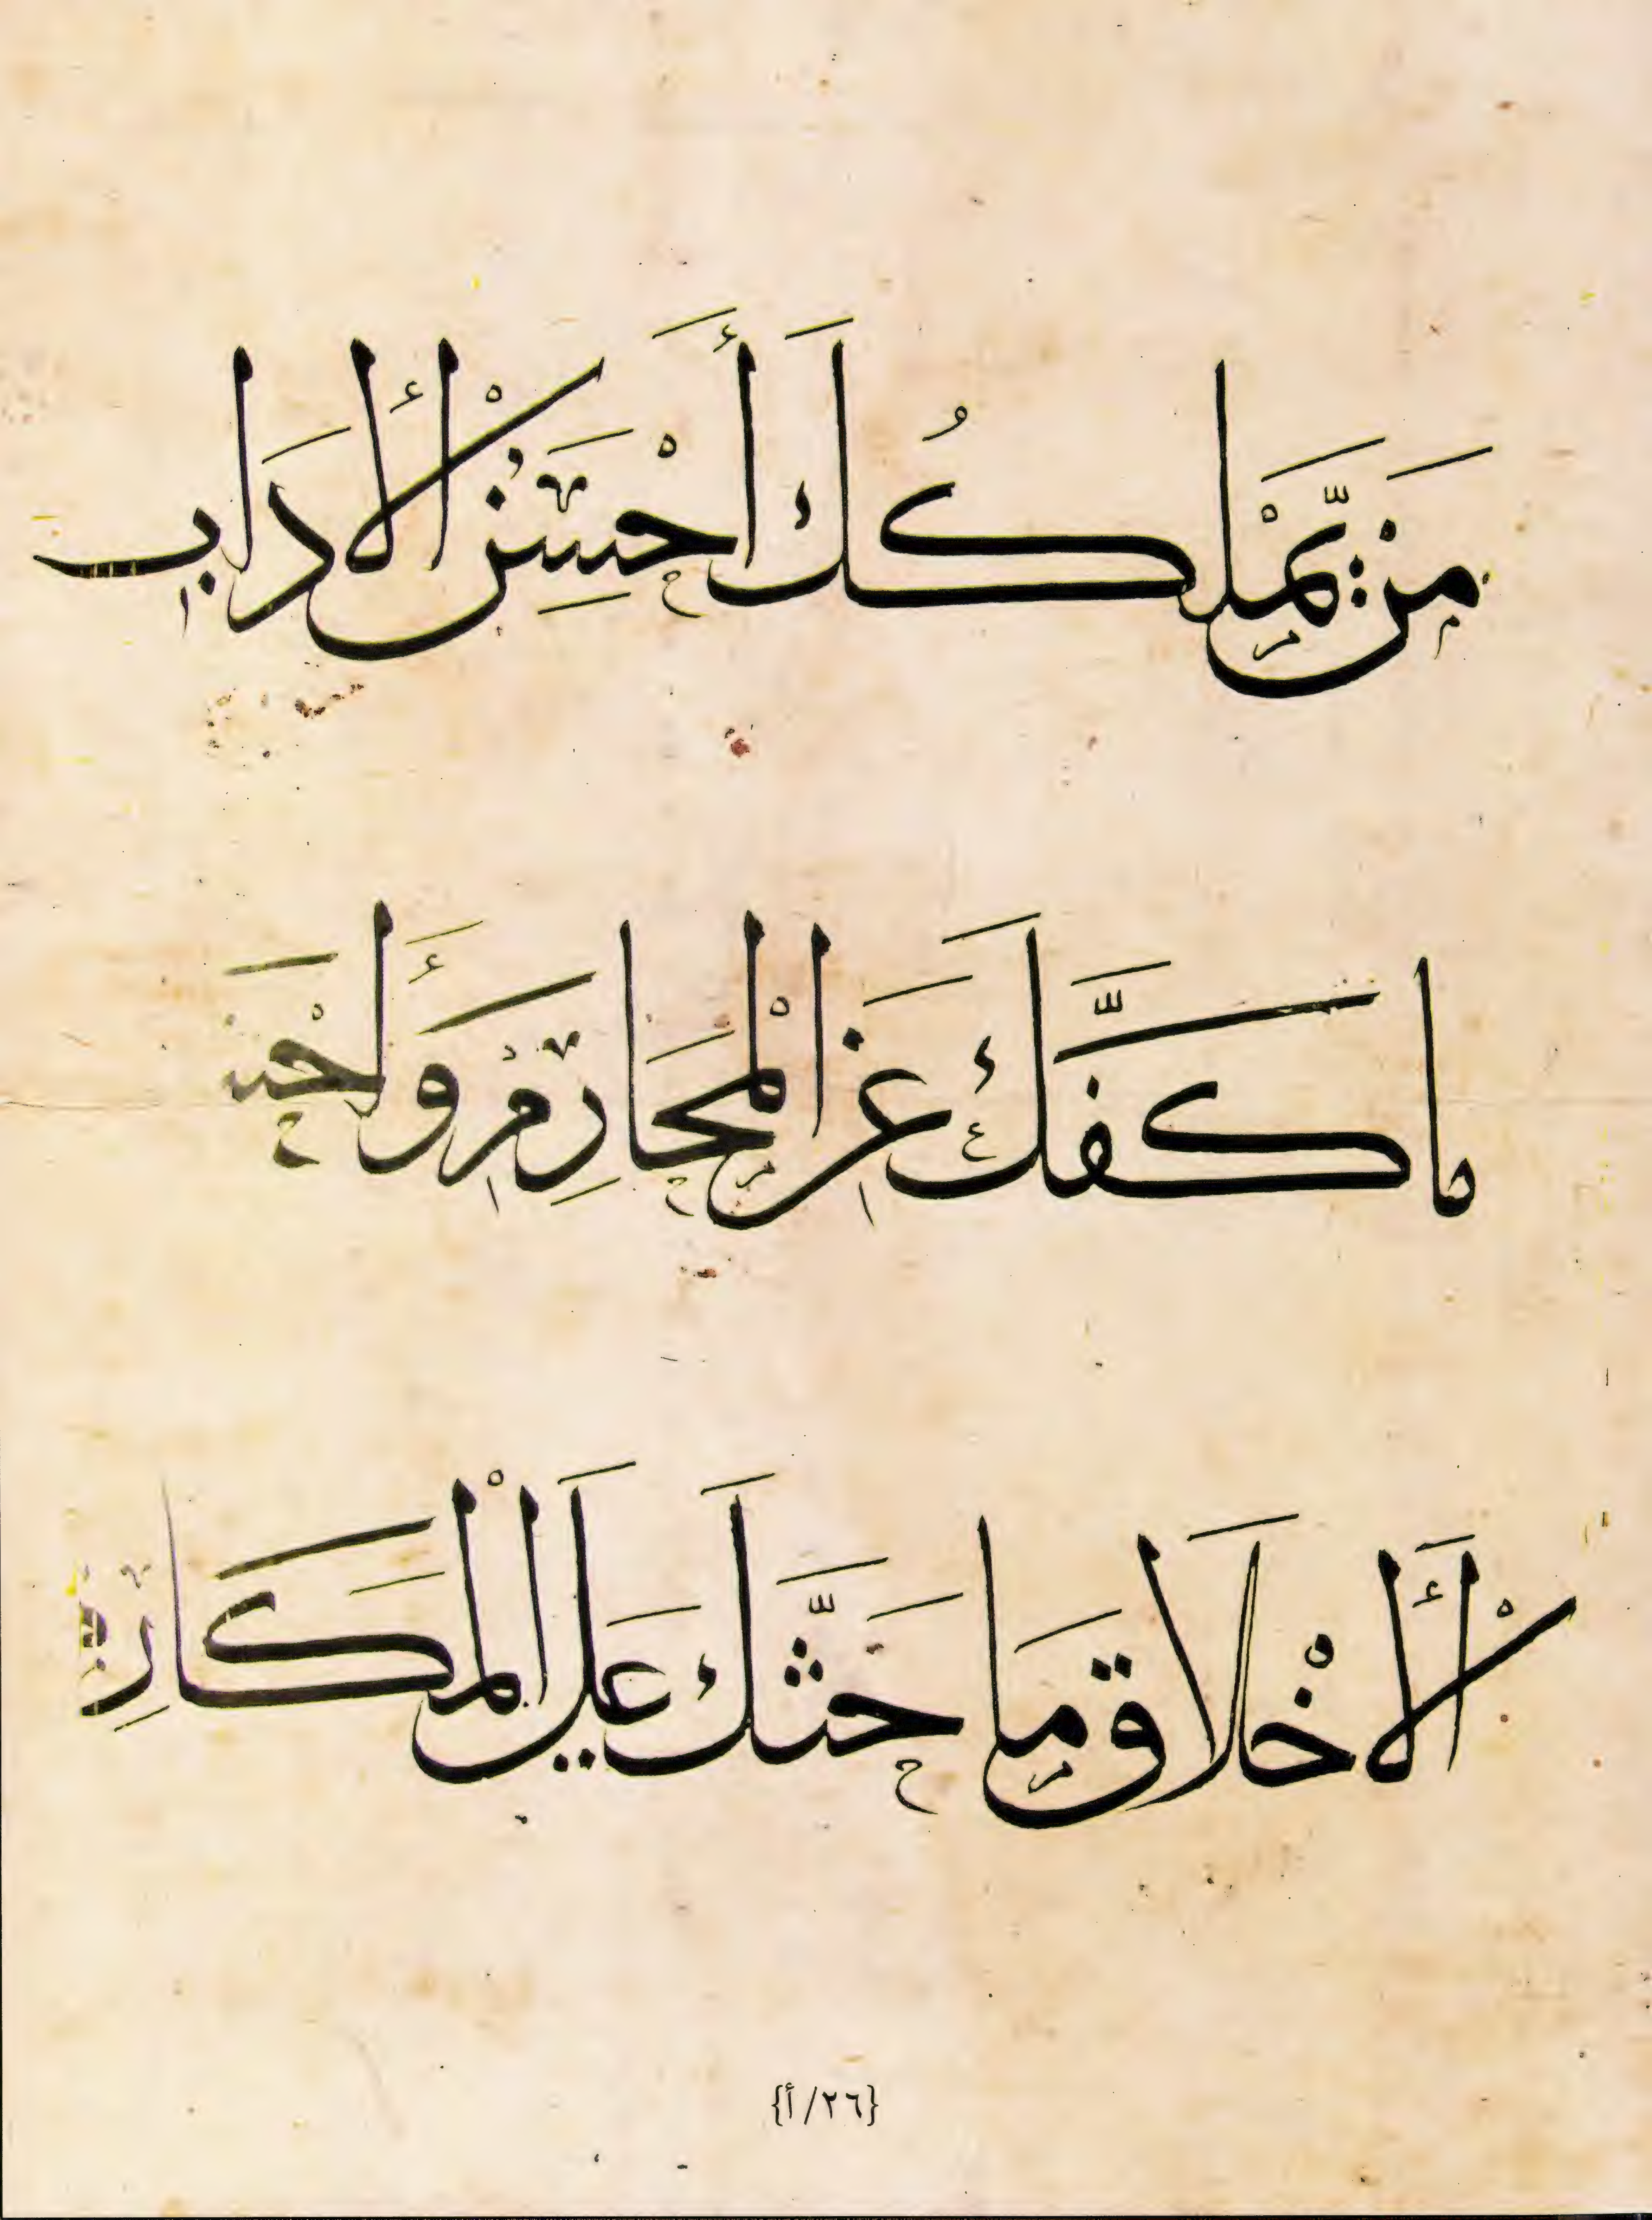 مَنْ يَّمْلَكُكَ أَحْسَنُ الْأَدَابِ
ما كَفَّكَ عَنِ الْمَحَارِمِ وَأَحْسَنُ
الْأَخْلَاقِ مَا حَثَّكَ عَلَى الْمَكَارِمِ
{٢٦/أ}